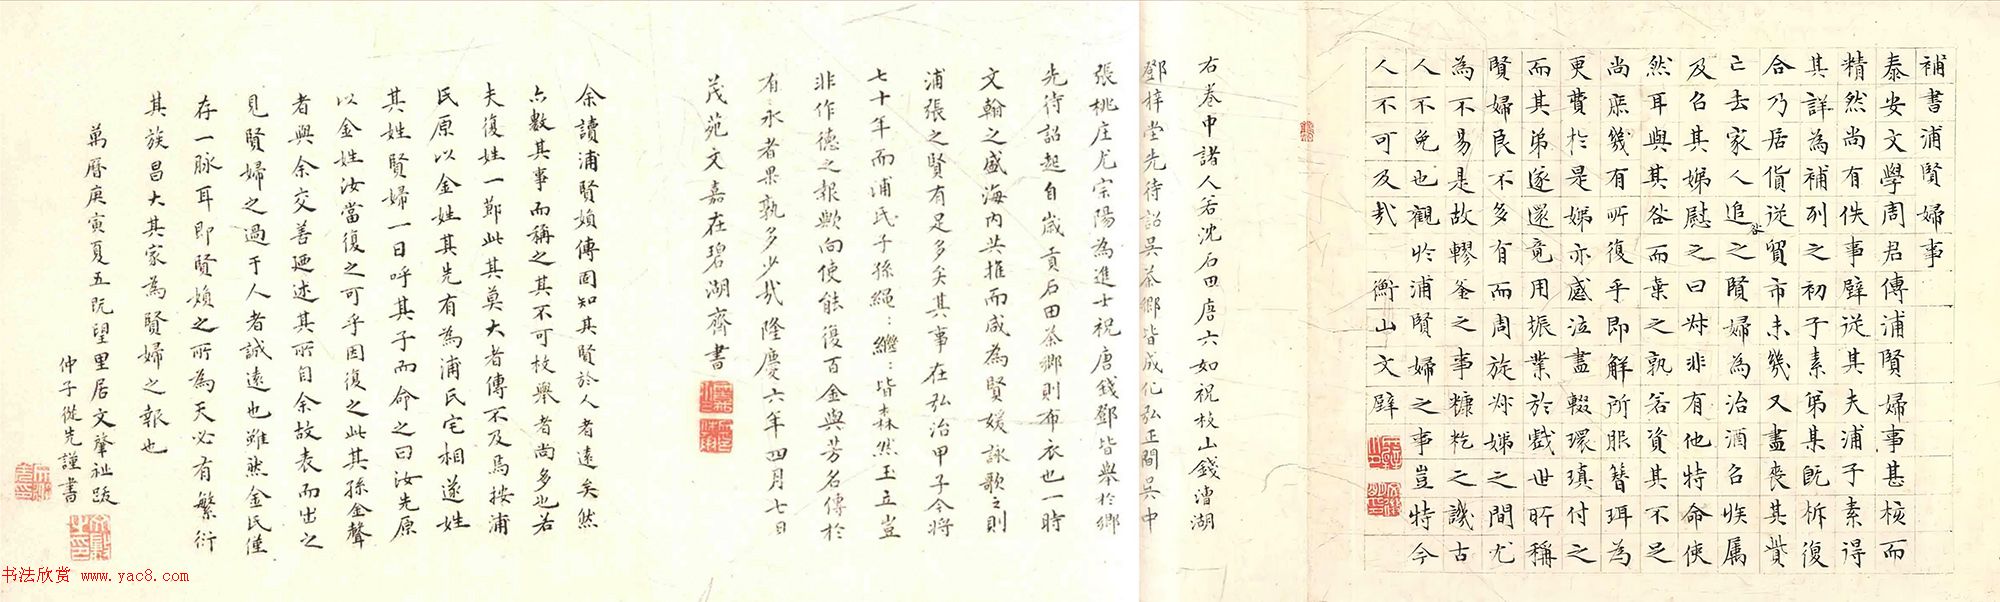 補書浦賢婦事
泰安文學周君傳浦賢婦事甚核而
精然尚有佚事壁從其夫浦子素得
其詳為補列之初子素弟某既柝復
合乃居貨從賈市未幾又盡喪其貲
亡去家人追之賢婦為治酒召族属
及召其娣慰之曰叔非有他特命使
然耳與其咎而棄之孰若資其不足
尚庶幾有所復乎即解所服簪珥為
更費於是娣亦感泣盡輟環瑱付之
而其弟遂還竟用振業於戲世所稱
賢婦民不多有而周旋叔娣之間尤
為不易是故轑釜之事糠籺之譏古
人不免也觀於浦賢婦之事豈特今
人不可及哉 衡山文壁
右卷中諸人若沈石田唐六如祝枝山錢漕湖
鄧梓堂先待詔吳茶鄉皆成化弘正間吳中
張桃庄尤宗陽為進士祝唐錢鄧皆舉於鄉
先待詔起自歲貢石田茶鄉則布衣也一時
文翰之盛海內共推而咸為賢媛詠歌之則
浦張之賢有足多矣其事在弘治甲子今將
七十年而浦氏子孫繩:繼:皆森然玉立豈
非作德之報歟向使能復百金與芳名傳於
有永者果孰多少哉隆慶六年四月七日
茂苑文嘉在碧湖齋書
余讀浦賢媍傳固知其賢於人者遠矣然
亦數其事而稱之其不可枚舉者尚多也若
夫復姓一節此其莫大者傳不及焉按浦
民原以金姓其先有為浦氏宅相遂姓
其姓賢婦一日呼其子而命之曰汝先原
以金姓汝當復之可乎因復之此其孫金聲
者與余交善廼述其所自余故表而出之
見賢婦之過于人者誠遠也雖然金氏僅
存一脉耳即賢媍之所為天必有繁衍
其族昌大其家為賢婦之報也
萬曆庚寅夏五既望里居文肇祉跋
仲子從先謹書
书法欣赏 www.yac8.com